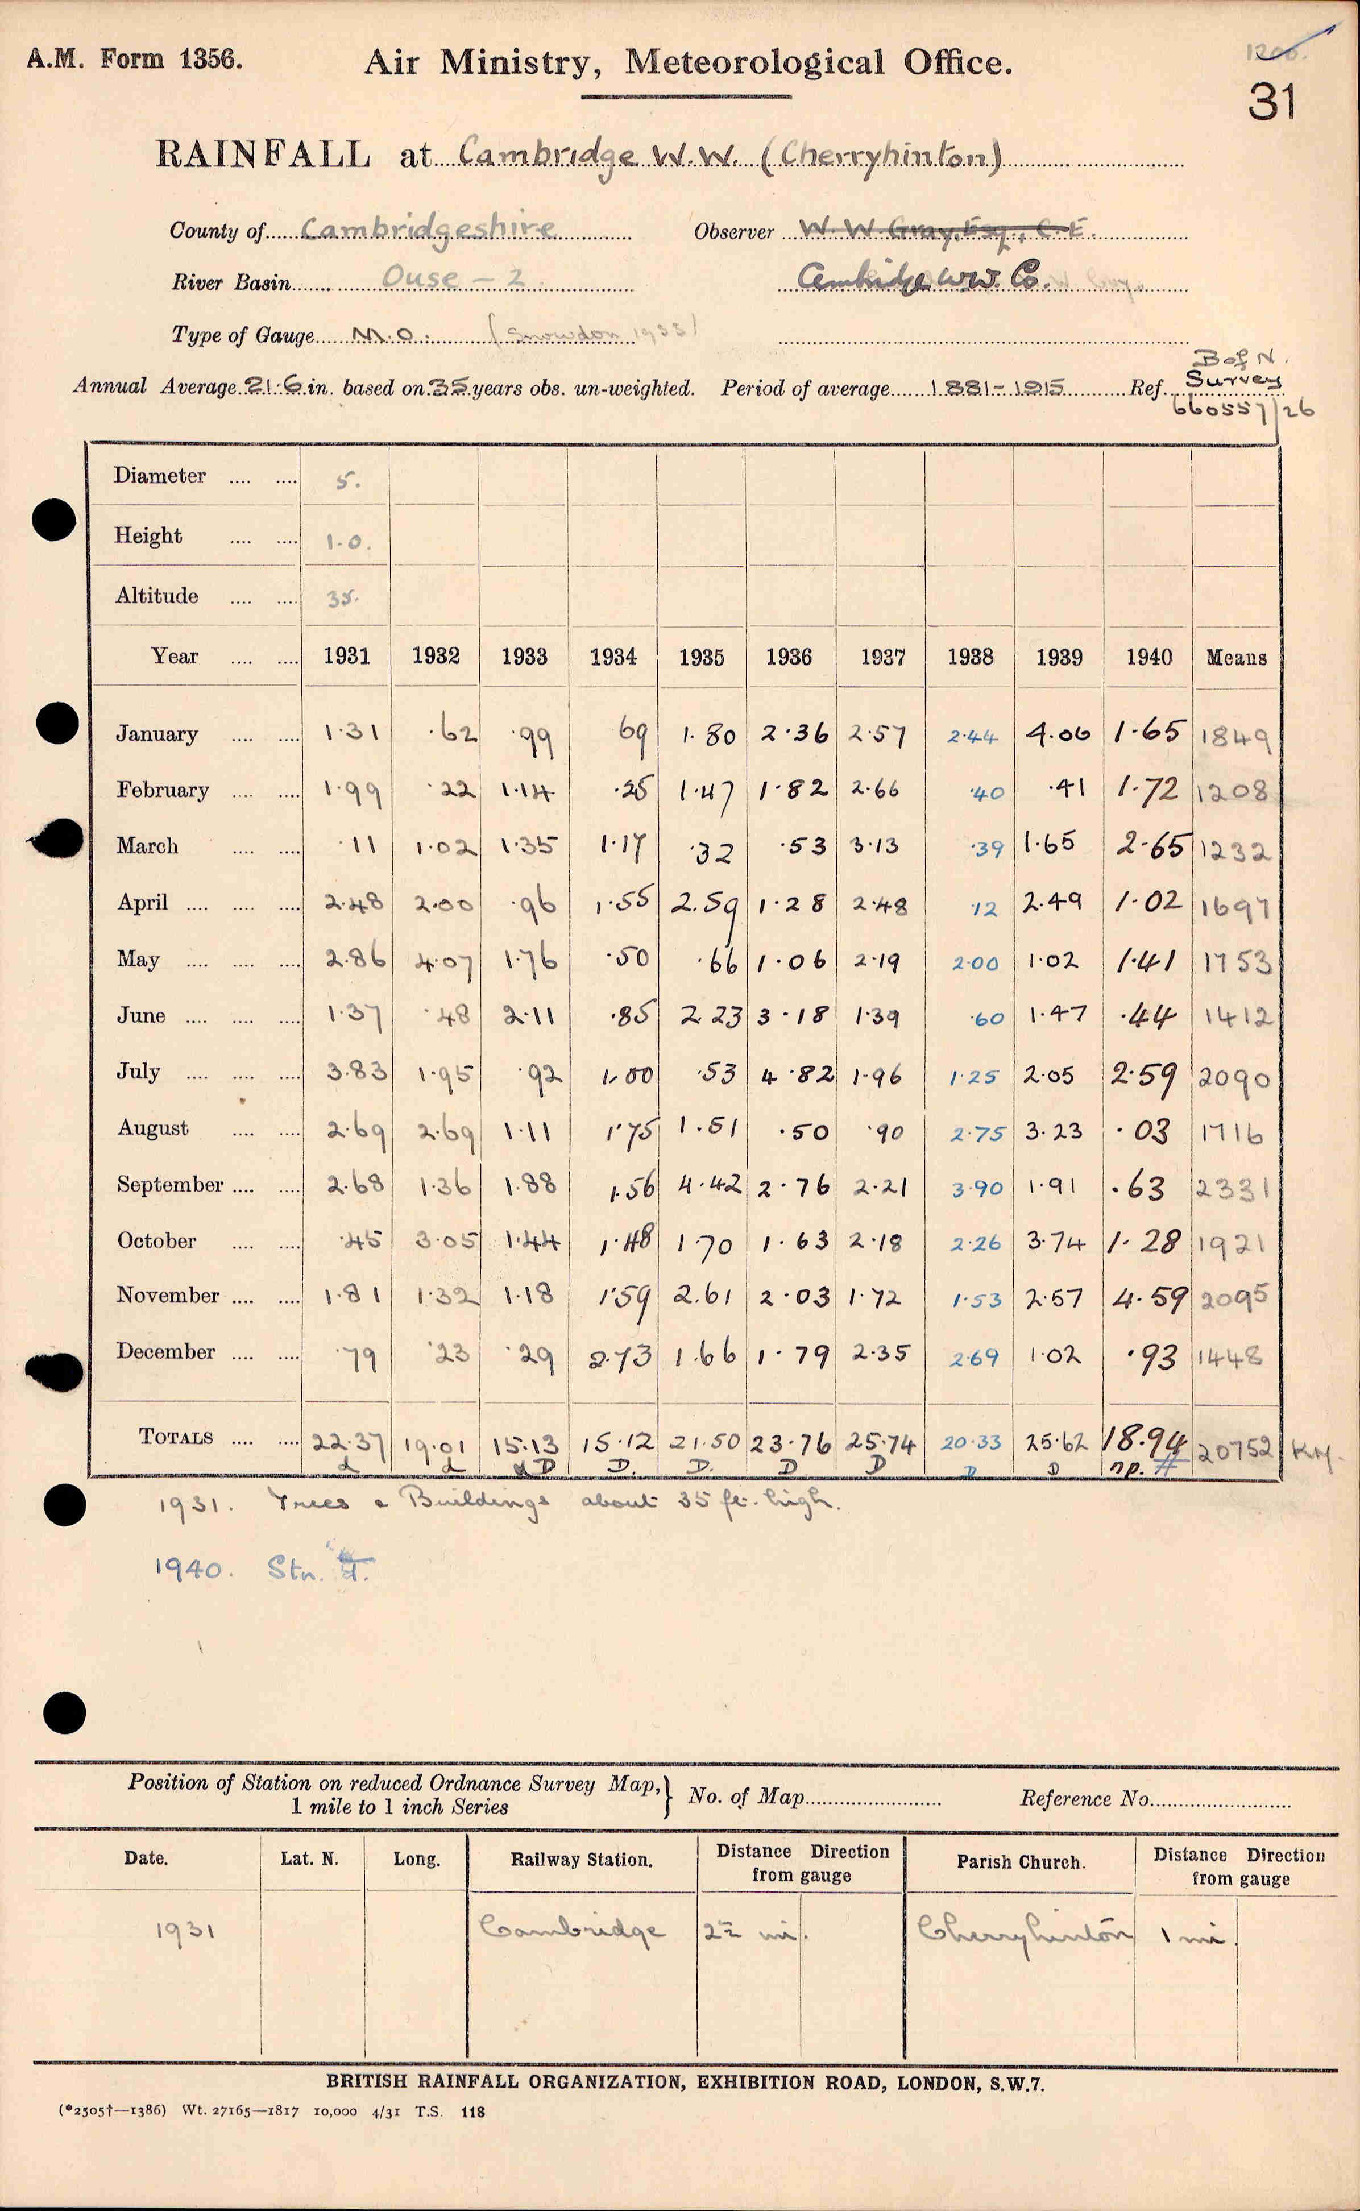 A.M. Form 1356. Air Ministry, Meteorological Office.
31
RAINFALL at Cambridge W.W. (Cherryhinton)
County of Cambridgeshire Observer W. W. Gray, Esq., C.E.
River Basin Ouse - 2 Cambridge W.W. Co.
Type of Gauge M.O. (Snowdon 1933)
Annual Average 21.6 in. based on 35 years obs. un-weighted. Period of average 1881-1915 Ref. B of N. Survey 660557/26
Diameter 5.
Height 1.0.
Altitude 35.
Year 1931 1932 1933 1934 1935 1936 1937 1938 1939 1940 Means
January 1.31 .62 .99 69 1.80 2.36 2.57 2.44 4.06 1.65 1849
February 1.99 .22 1.14 .25 1.47 1.82 2.66 .40 .41 1.72 1208
March .11 1.02 1.35 1.17 .32 .53 3.13 .39 1.65 2.65 1232
April 2.48 2.00 .96 1.55 2.59 1.28 2.48 .12 2.49 1.02 1697
May 2.86 4.07 1.76 .50 .66 1.06 2.19 2.00 1.02 1.41 1753
June 1.37 .48 2.11 .85 2.23 3.18 1.39 .60 1.47 .44 1412
July 3.83 1.95 .92 1.00 .53 4.82 1.96 1.25 2.05 2.59 2090
August 2.69 2.69 1.11 1.75 1.51 .50 .90 2.75 3.23 .03 1716
September 2.68 1.36 1.88 1.56 4.42 2.76 2.21 3.90 1.91 .63 2331
October .45 3.05 1.44 1.48 1.70 1.63 2.18 2.26 3.74 1.28 1921
November 1.81 1.32 1.18 1.59 2.61 2.03 1.72 1.53 2.57 4.59 2095
December .79 .23 .29 2.73 1.66 1.79 2.35 2.69 1.02 .93 1448
TOTALS 22.37 19.01 15.13 15.12 21.50 23.76 25.74 20.33 25.62 18.94 20752
D. D. D D D D np.
1931. Trees & Buildings about 35 ft. high.
1940. Stn.
Position of Station on reduced Ordnance Survey Map, 1 mile to 1 inch Series } No. of Map Reference No.
Date. Lat. N. Long. Railway Station. Distance Direction from gauge Parish Church. Distance Direction from gauge
1931 Cambridge 2½ mi. Cherryhinton 1 mi.
BRITISH RAINFALL ORGANIZATION, EXHIBITION ROAD, LONDON, S.W.7.
(*2505†—1386) Wt. 27165—1817 10,000 4/31 T.S. 118